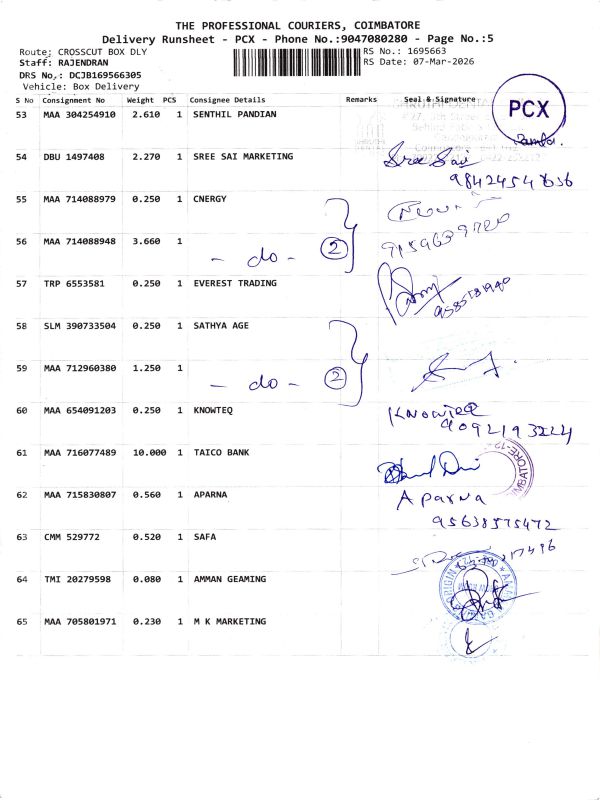 THE PROFESSIONAL COURIERS, COIMBATORE
Delivery Runsheet - PCX - Phone No.:9047080280 - Page No.:5
Route: CROSSCUT BOX DLY
RS No.: 1695663
Staff: RAJENDRAN
RS Date: 07-Mar-2026
DRS No.: DCJB169566305
Vehicle: Box Delivery
PCX
S No Consignment No Weight PCS Consignee Details Remarks Seal & Signature
53 MAA 304254910 2.610 1 SENTHIL PANDIAN
54 DBU 1497408 2.270 1 SREE SAI MARKETING Sree Sai
55 MAA 714088979 0.250 1 CNERGY
56 MAA 714088948 3.660 1
- do - 2
57 TRP 6553581 0.250 1 EVEREST TRADING
58 SLM 390733504 0.250 1 SATHYA AGE
59 MAA 712960380 1.250 1
- do - 2
60 MAA 654091203 0.250 1 KNOWTEQ KNOWTEQ
9092193224
61 MAA 716077489 10.000 1 TAICO BANK
62 MAA 715830807 0.560 1 APARNA Aparna
95638575472
63 CMM 529772 0.520 1 SAFA
64 TMI 20279598 0.080 1 AMMAN GEAMING
65 MAA 705801971 0.230 1 M K MARKETING